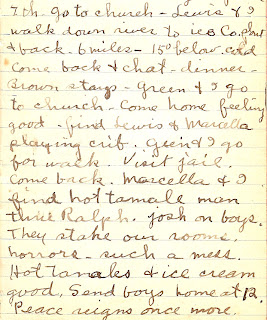 7th. Go to church - Lewis & I
walk down river to ice Co. plant
& back. 6 miles - 15° below. cold
Come back & chat - dinner -
Brown stays - Green & I go
to church - Come home feeling
good - find Lewis & Marcella
playing crib. Green & I go
for walk. Visit jail.
Come back. Marcella & I
find hot tamale man
thru Ralph. Josh on boys.
They stake our rooms.
horrors - such a mess.
Hot Tamales & ice cream
good. Send boys home at 12.
Peace reigns once more.